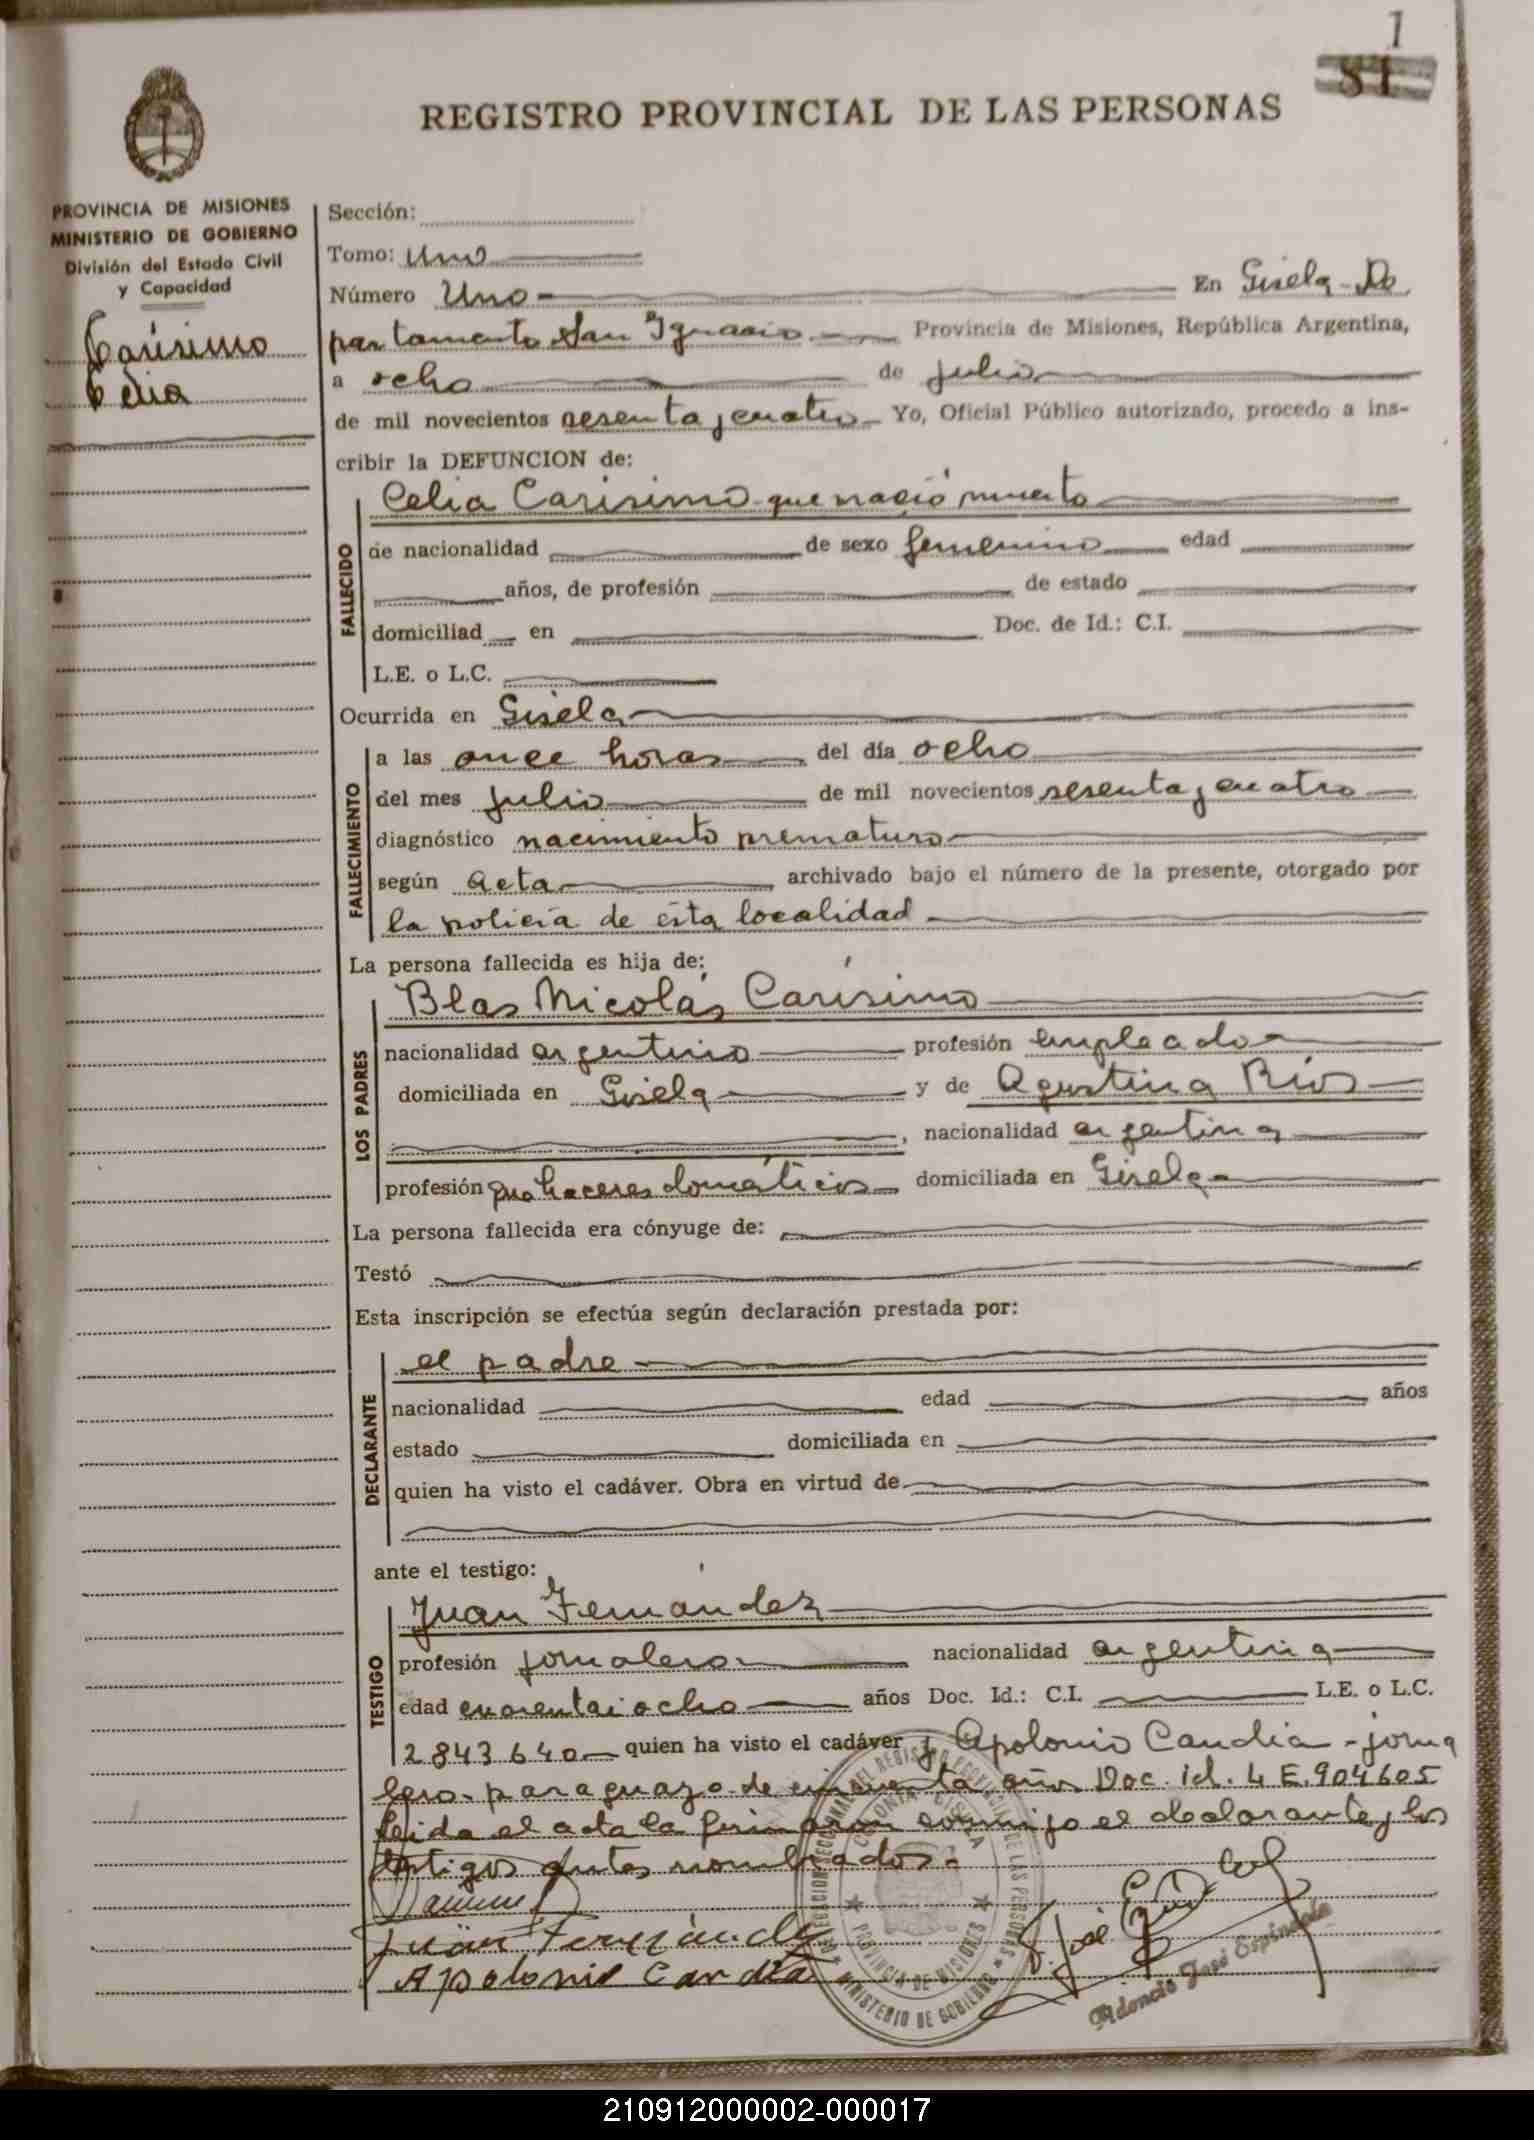 1
81
REGISTRO PROVINCIAL DE LAS PERSONAS
PROVINCIA DE MISIONES
MINISTERIO DE GOBIERNO
División del Estado Civil
y Capacidad
Carísimo
Celia
Sección:
Tomo: Uno
Número Uno En Gisela - De
partamento San Ignacio Provincia de Misiones, República Argentina,
a ocho de julio
de mil novecientos sesenta y cuatro Yo, Oficial Público autorizado, procedo a ins-
cribir la DEFUNCION de:
FALLECIDO
Celia Carísimo que nació muerto
de nacionalidad de sexo femenino edad
años, de profesión de estado
domiciliad en Doc. de Id.: C.I.
L.E. o L.C.
Ocurrida en Gisela
FALLECIMIENTO
a las once horas del día ocho
del mes julio de mil novecientos sesenta y cuatro
diagnóstico nacimiento prematuro
según acta archivado bajo el número de la presente, otorgado por
la policía de ésta localidad
La persona fallecida es hija de:
LOS PADRES
Blas Nicolás Carísimo
nacionalidad argentino profesión empleado
domiciliada en Gisela y de Agustina Ríos
, nacionalidad argentina
profesión quehaceres domésticos domiciliada en Gisela
La persona fallecida era cónyuge de:
Testó
Esta inscripción se efectúa según declaración prestada por:
DECLARANTE
el padre
nacionalidad edad años
estado domiciliada en
quien ha visto el cadáver. Obra en virtud de
ante el testigo:
TESTIGO
Juan Fernández
profesión jornalero nacionalidad argentina
edad cuarentaiocho años Doc. Id.: C.I. L.E. o L.C.
2843640 quien ha visto el cadáver y Apolonio Candia - jorna
lero - paraguayo - de cincuenta años Doc. id. L E. 904605
leida el acta la firmaron conmigo el declarante y los
testigos antes nombrados.-
Juan Fernánde
Apolonio Candia
COLONIA GISELA
PROVINCIA DE MISIONES
MINISTERIO DE GOBIERNO
Adoncio José Espíndola
210912000002-000017